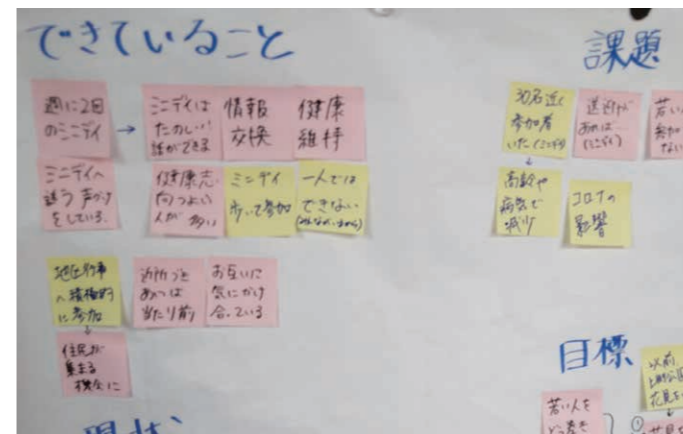 できていること
週に2回
のミニデイ
→
ミニデイは
たのしい!
話ができる
情報
交換
健康
維持
ミニデイへ
誘う声かけ
をしている。
健康志
向つよい
人が多い
ミニデイ
歩いて参加
一人では
できない
(みんながいるから)
地区行事
へ積極的
に参加
↓
住民が
集まる
機会に
近所づき
あいは
当たり前
お互いに
気にかけ
合っている
課題
30名近く
参加者
いた(ミニデイ)
↓
高齢や
病気で
減少
送迎が
あれば…
(ミニデイ)
若い
参加
ない
コロナの
影響
目標
以前
花見を
若い人を
①
現状